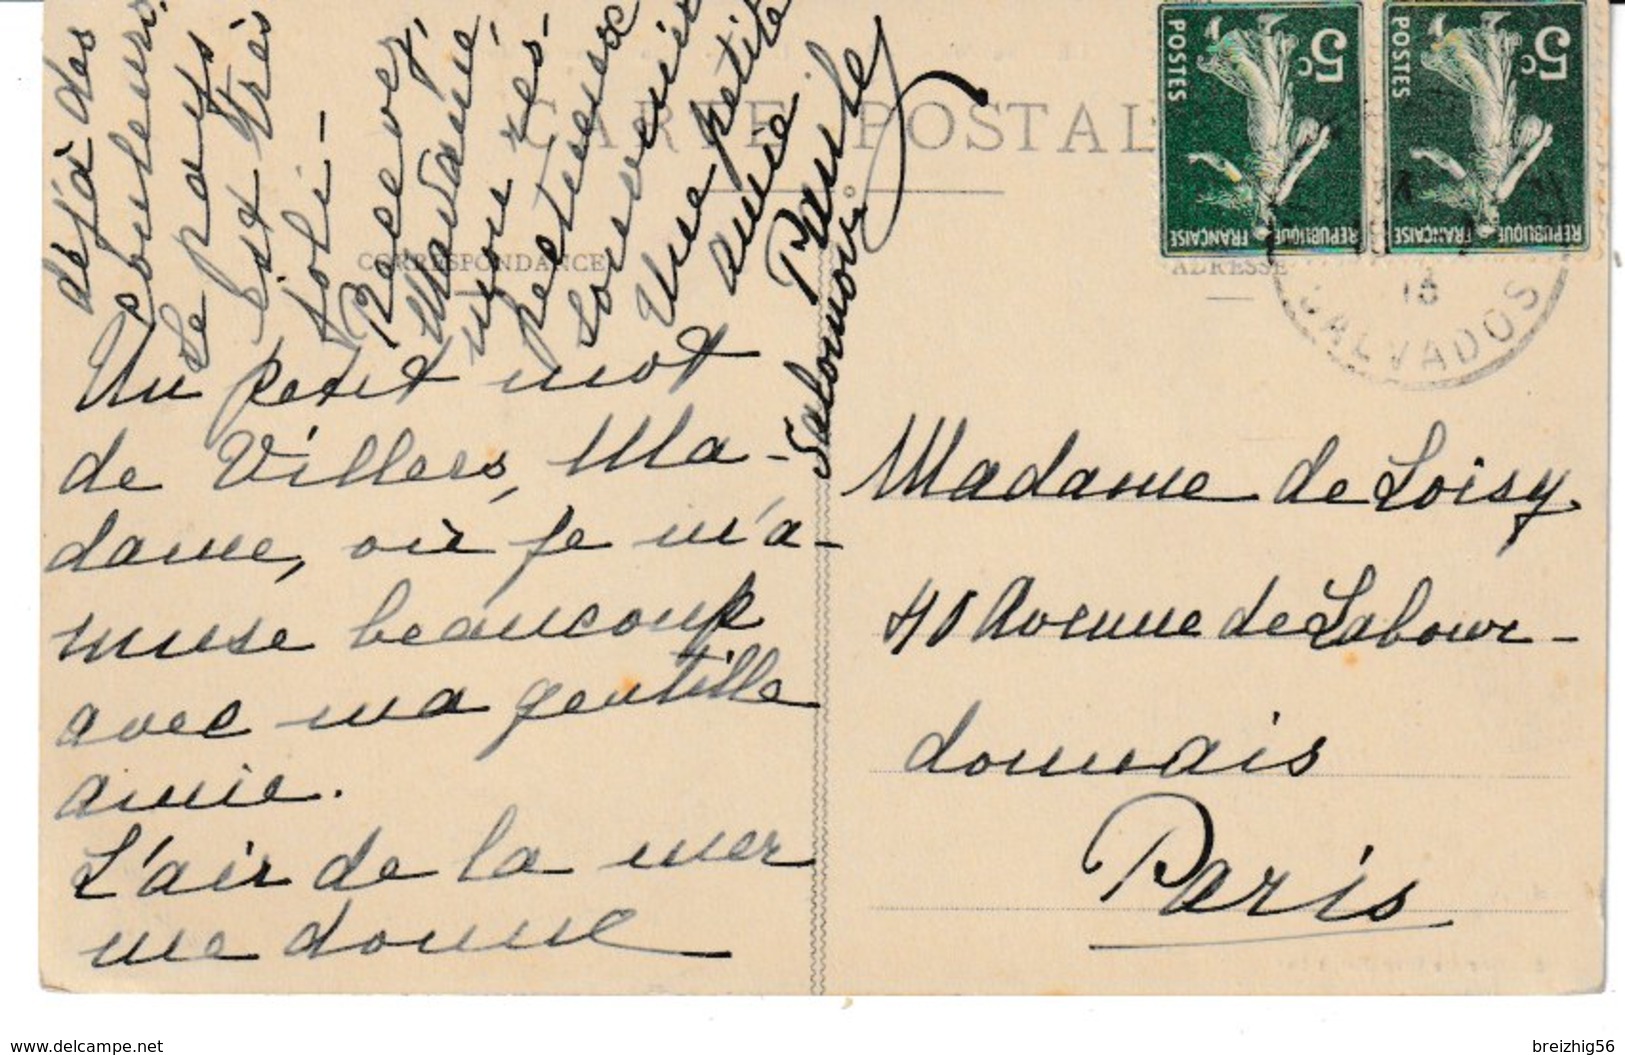 CARTE POSTALE
CORRESPONDANCE
ADRESSE
5c
POSTES
REPUBLIQUE FRANÇAISE
5c
POSTES
REPUBLIQUE FRANÇAISE
18
CALVADOS
Un petit mot
de Villers, Ma-
dame, où je m'a-
muse beaucoup
avec ma gentille
amie.
L'air de la mer
me donne
déjà des
couleurs.
Le pays
est très
joli-
Recevez,
Madame,
mon res-
pectueux
souvenir
Une petite
amie
Paule
Salomon
Madame de Loisy
40 Avenue de Labour-
donnais
Paris
www.delcampe.net
breizhig56